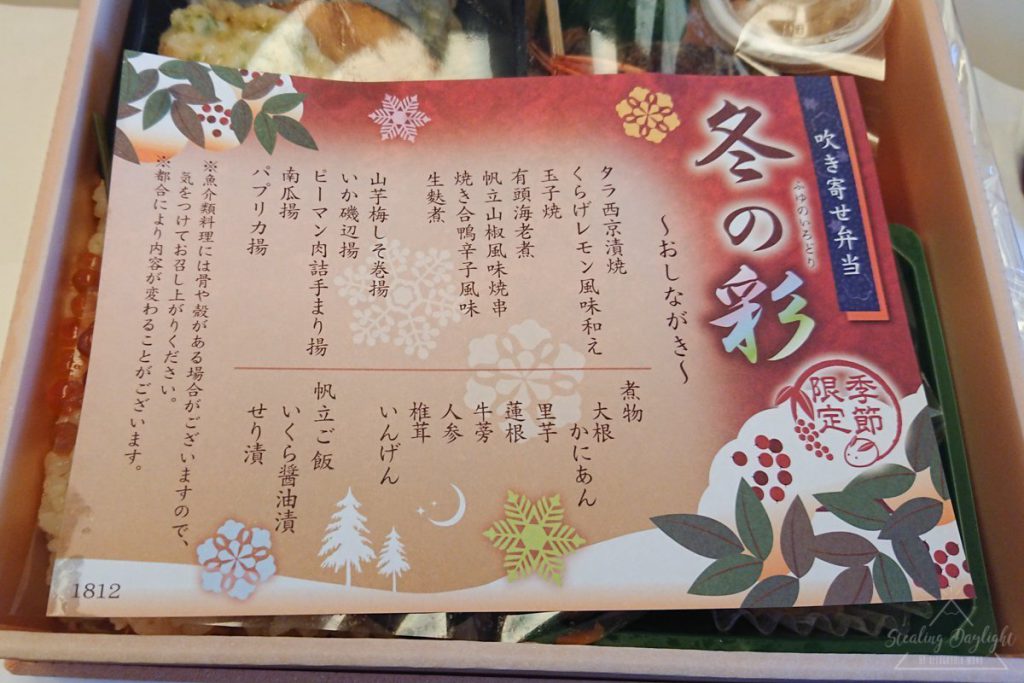 吹き寄せ弁当
冬の彩
ふゆのいろどり
季節
限定
〜おしながき〜
タラ西京漬焼
くらげレモン風味和え
玉子焼
有頭海老煮
帆立山椒風味焼串
焼き合鴨辛子風味
生麩煮
山芋梅しそ巻揚
いか磯辺揚
ピーマン肉詰手まり揚
南瓜揚
パプリカ揚
煮物
大根 かにあん
里芋
蓮根
牛蒡
人参
椎茸
いんげん
帆立ご飯
いくら醤油漬
せり漬
※魚介類料理には骨や殻がある場合がございますので、
気をつけてお召し上がりください。
※都合により内容が変わることがございます。
1812
Stealing Daylight